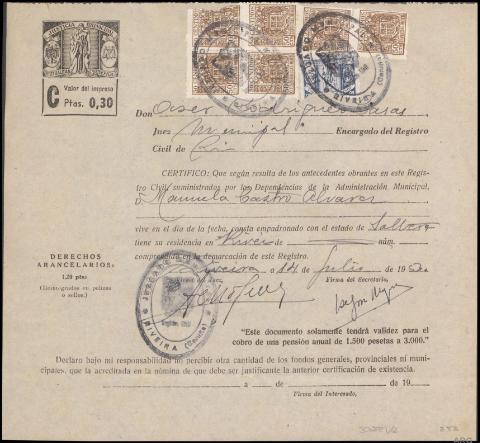 JUSTICIA MUNICIPAL
C Valor del impreso
Ptas. 0,30
Don Oscar Rodriguez
Juez Municipal Encargado del Registro
Civil de
CERTIFICO: Que según resulta de los antecedentes obrantes en este Regis-
tro Civil suministrados por las Dependencias de la Administración Municipal,
D. Manuela Castro Alvarez
vive en el día de la fecha, consta empadronado con el estado de Soltera
tiene su residencia en de núm.
comprendido en la demarcación de este Registro.
Riveira a 14 de Julio de 195
DERECHOS
ARANCELARIOS:
1,20 ptas
(Reintegradas en pólizas
o sellos.)
Firma del Secretario,
JUZGADO
RIVEIRA (Coruña)
"Este documento solamente tendrá validez para el
cobro de una pensión anual de 1.500 pesetas a 3.000."
Declaro bajo mi responsabilidad no percibir otra cantidad de los fondos generales, provinciales ni muni-
cipales, que la acreditada en la nómina de que debe ser justificante la anterior certificación de existencia.
a de de 19
Firma del Interesado,